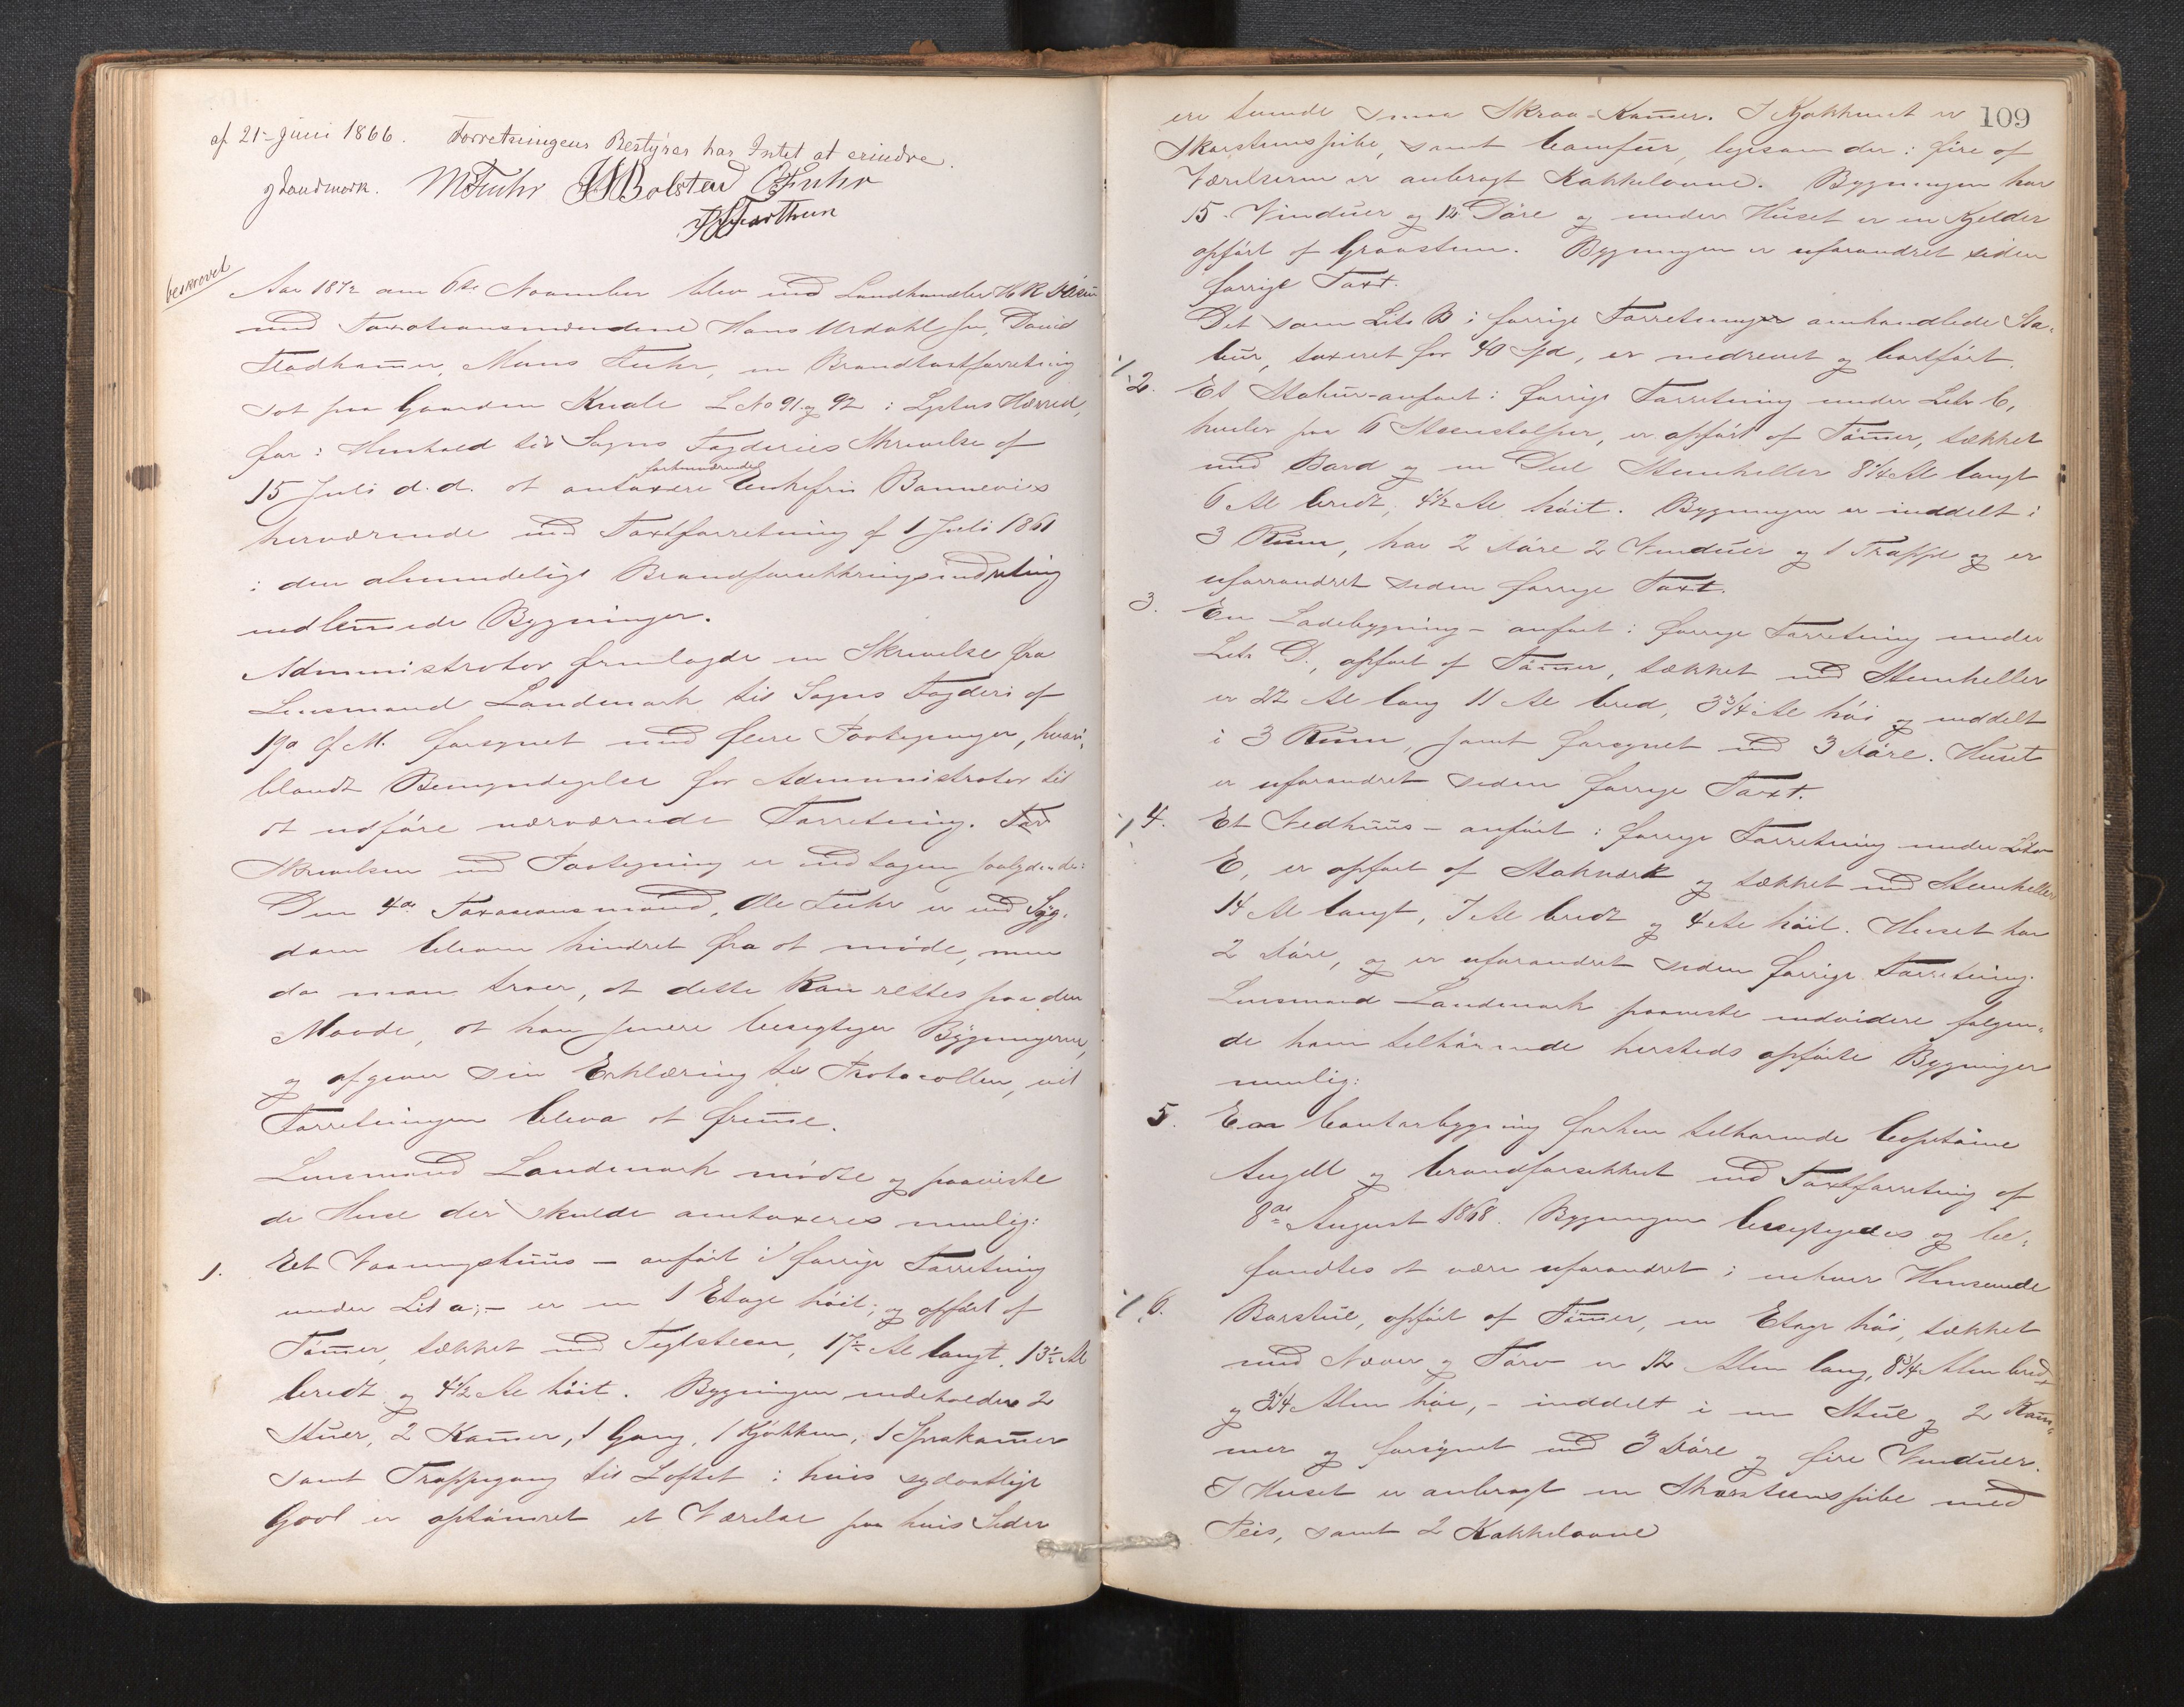 af 21– Juni 1866. Forretningens Bestyrer har Intet at erindre.
G Landmark. M Fuhr Bolstad O Fuhr
Farthun
beskrevet
Aar 1872 am 6te November blev med Landhandler H R
med Taxationsmændene Hans Urdahl jr, David
Flodhamer, Mons Fuhr, en Brandtaxtforretning
sat paa Gaarden Kvale L No 91 og 92 i Lysters Herred,
for i Henhold til Sogns Fogderies Skrivelse af
15 Juli d.d. at omtaxere forhenværende Enkefru Bonnevies
herværende ved Taxtforretning af 1 Juli 1861
i den almindelige Brandforsikkringsindretning
indlemede Bygninger.
Administrator fremlagde en Skrivelse fra
Lensmand Landmark til Sogns Fogderi af
19de f. M. forsynet med flere Paategninger, hvori-
blandt Bemyndigelse for Administrator til
at udføre nærværende Forretning.
Skrivelsen med Paategning er indtagen saalydende:
Den 4de Taxasionsmand, Ole Fuhr er ved Syg-
dom bleven hindret fra at møde, men
da man troer, at dette kan rettes paa den
Maade, at han senere besigtiger Bygningerne,
og afgiver sin Erklæring til Protocollen, vil
Forretningen bleve at freme.
Lensmand Landmark mødte og paaviste
de Huse der skulde omtaxeres nemlig:
1. Et Vaaningshuus – anført i forrige Forretning
under Lit a; – er en 1 Etage høit, og opført af
Tømer, tækket med Teglsteen, 17½ Al langt, 13½ Al
bredt og 4½ Al høit. Bygningen indeholder 2
Stuer, 2 Kamer, 1 Gang, 1 Kjøkken, 1 Spisekamer
samt Trappegang til Loftet i hvis sydostlige
Gavl er optømret et Værelse paa hvis Sider
109
ere tvende smaa Skraa-Kamer. I Kjøkkenet er
Skorsteenspibe, samt Comfur, ligesom der i fire af
Værelserne er anbragt Kakkelovne. Bygningen har
15 Vinduer og 12 Døre og under Huset er en Kjelder
opført af Graasteen. Bygningen er uforandret siden
forrige Taxt.
Det som Litr B i forrige Forretninger omhandlede Sta-
bur, taxeret for 40 Spd, er nedrevet og bortført.
2. Et Stabur – anført i forrige Forretning under Litr C,
hviler paa 6 Steenstolper, er opført af Tømer, tækket
med Bord og en Deel Steenheller 8¼ Al langt
6 Al bredt, 4½ Al høit. Bygningen er inddelt i
3 Rum, har 2 Døre 2 Vinduer og 1 Trappe og er
uforandret siden forrige Taxt.
3. En Ladebygning – anført i forrige Forretning under
Litr D., opført af Tømer, tækket med Steenheller
er 22 Al lang 11 Al bred, 3¾ Al høi og inddelt
i 3 Rum, samt forsynet med 3 Døre. Huset
er uforandret siden forrige Taxt.
4. Et Vedhuus – anført i forrige Forretning under Litr
E, er opført af Stakværk og tækket med Steenheller
14 Al langt, 7 Al bredt og 4 Al høit. Huset har
2 Døre, og er uforandret siden forrige Forretning.
Lensmand Landmark paaviste endvidere følgen-
de ham tilhørende hersteds opførte Bygninger
nemlig:
5. En Contorbygning forhen tilhørende Capitaine
Angell og brandforsikket ved Taxtforretning af
8de August 1868. Bygningen besigtigedes og be-
fandtes at være uforandret i enhver Henseende
6. Borstue, opført af Tømer, en Etage høi, tækket
med Næver og Torv er 12 Alen lang, 8¾ Alen bred
og 3¼ Alen høi, – inddelt i en Stue og 2 Kam-
mer og forsynet med 3 Døre og fire Vinduer.
I Huset er anbragt en Skorsteenspibe med
Peis, samt 2 Kakkelovne